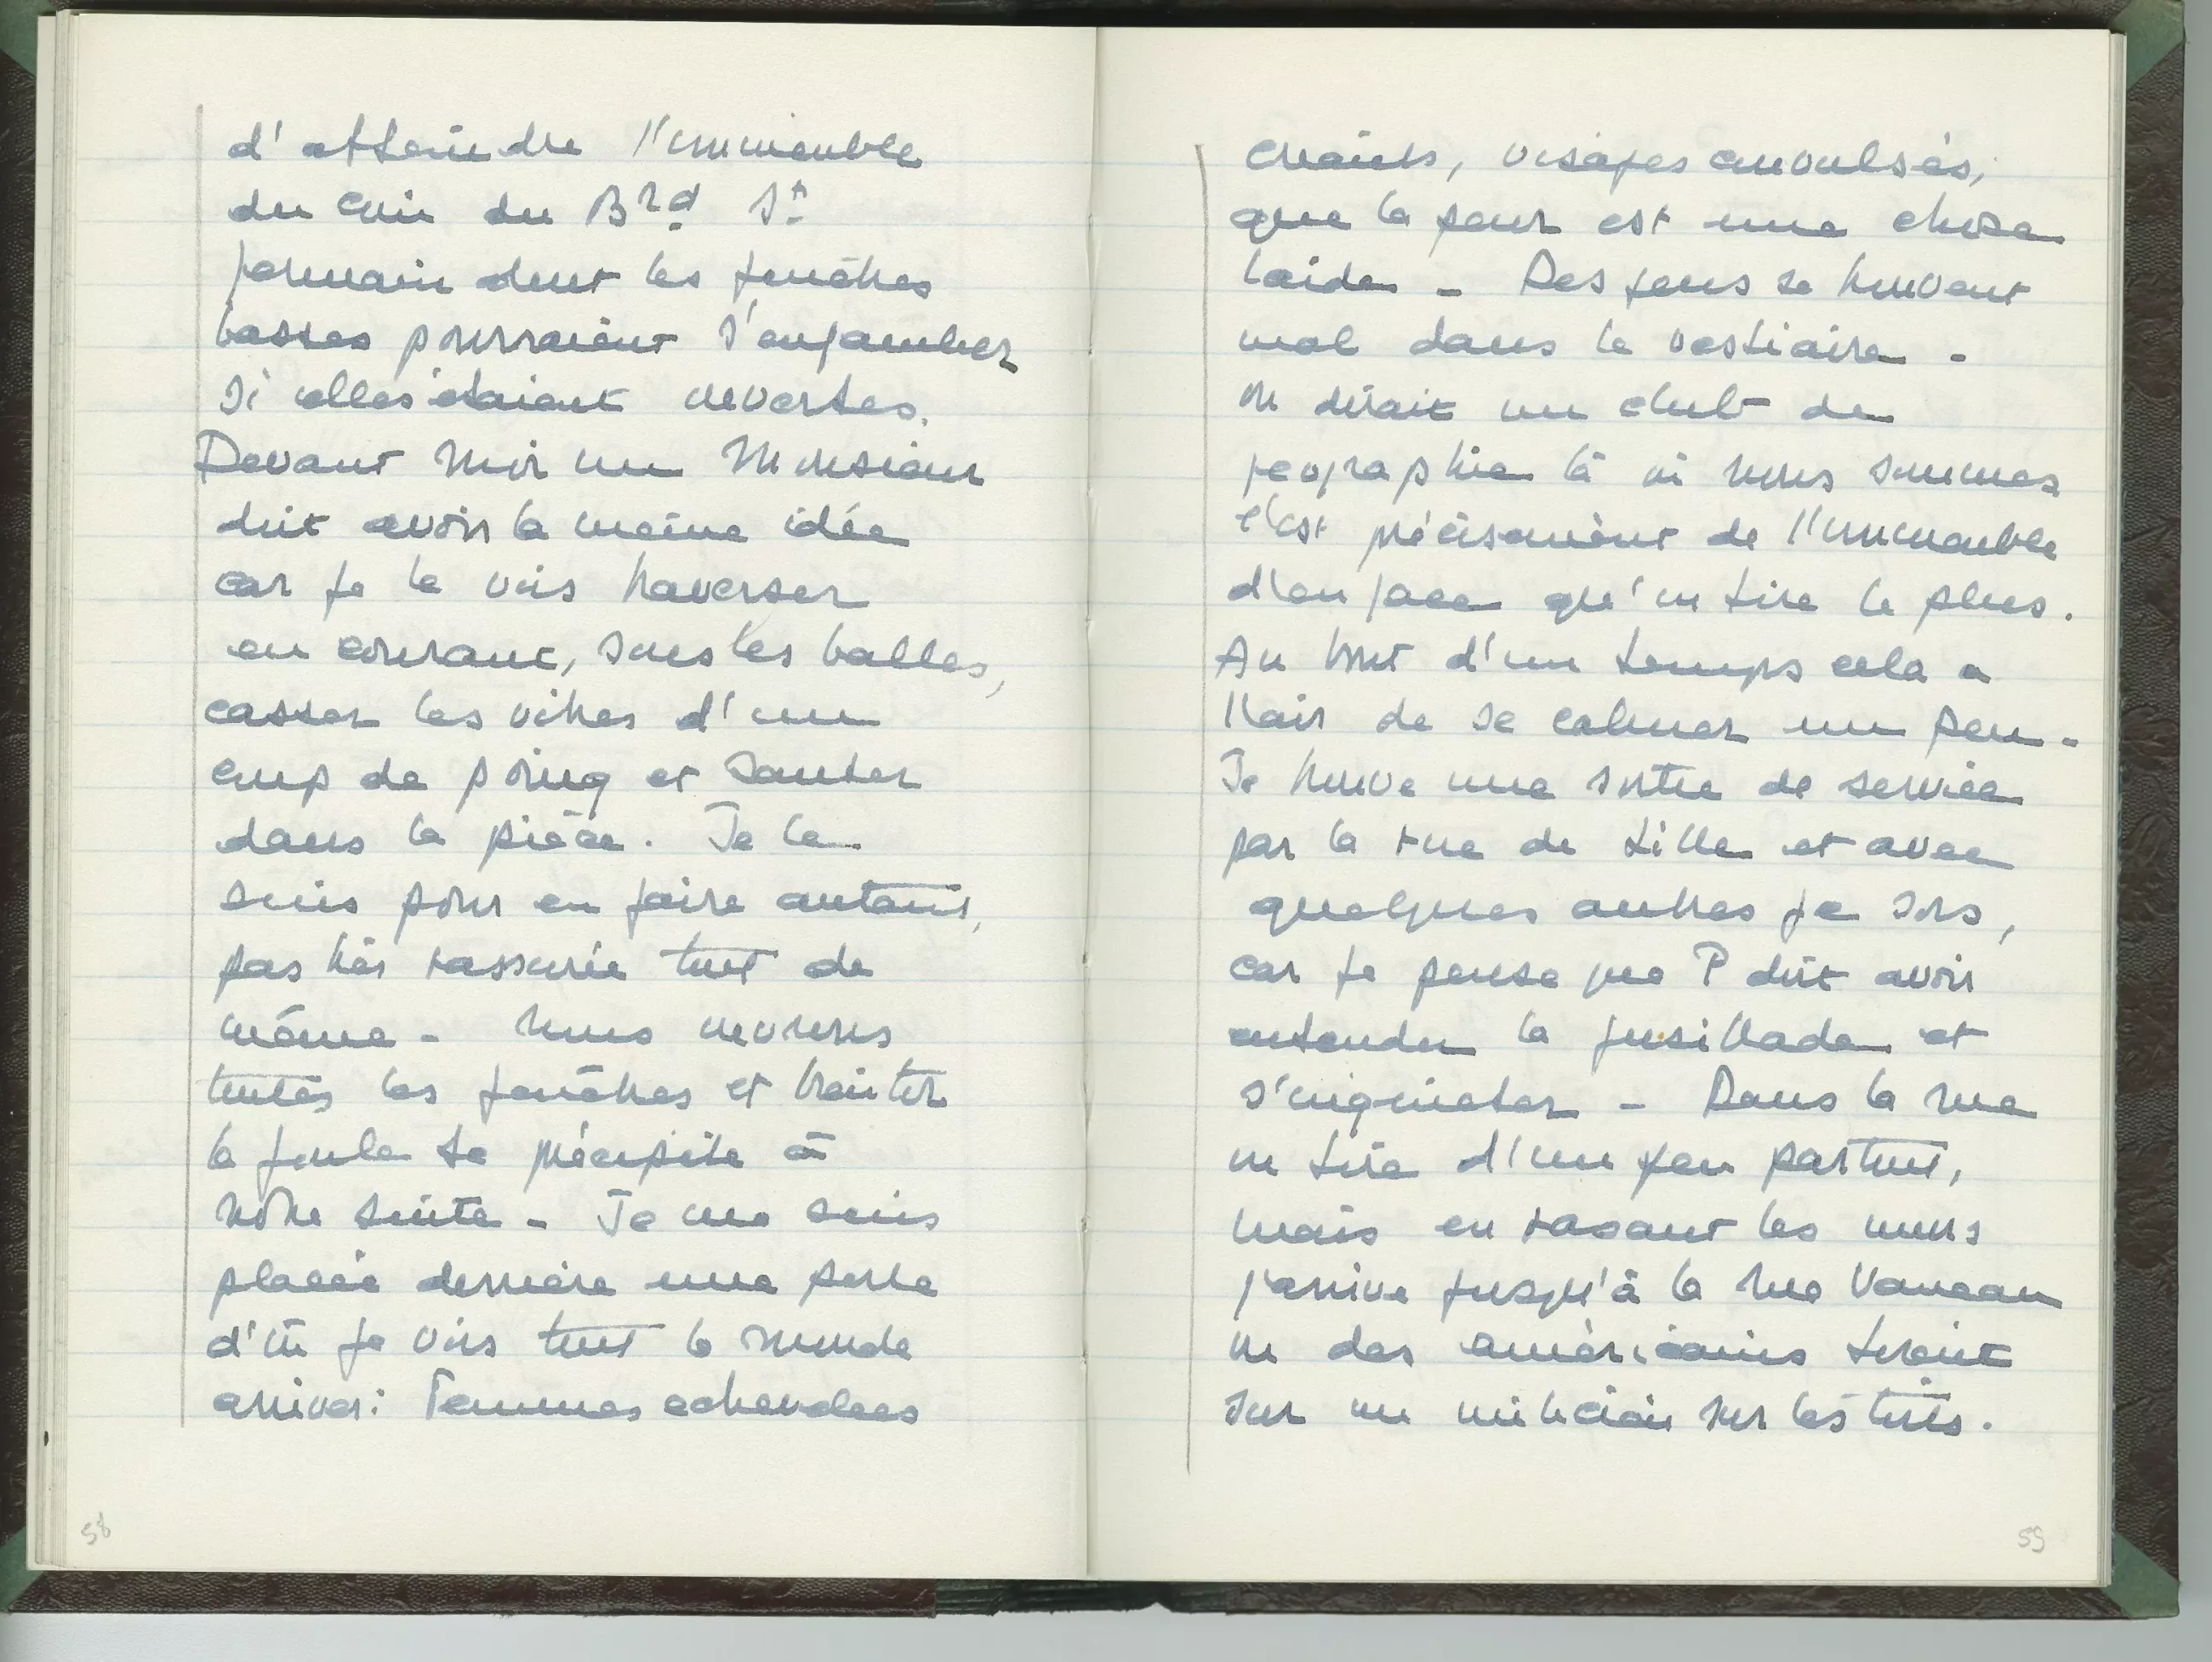 d'atteindre l'immeuble
du coin du Brd St
germain dont les fenêtres
basses pourraient s'enjamber
si elles étaient ouvertes.
Devant moi un Monsieur
doit avoir la même idée
car je le vois traverser
en courant, sous les balles,
casser les vitres d'un
coup de poing et sauter
dans la pièce. Je le
suis pour en faire autant,
pas très rassurée tout de
même - nous ouvrons
toutes les fenêtres et bientôt
la foule se précipite à
notre suite - Je me suis
placée derrière une porte
d'où je vois tout le monde
arriver : Femmes echevelees
58
criants, visages convulsés,
que la peur est une chose
laide - Des gens se trouvent
mal dans le vestiaire -
on dirait un club de
geographie là où nous sommes
c'est précisément de l'immeuble
d'en face qu'on tire le plus.
Au bout d'un temps cela a
l'air de se calmer un peu -
Je trouve une sortie de service
par la rue de Lille et avec
quelques autres je sors,
car je pense que P doit avoir
entendu la fusillade et
s'inquieter - Dans la rue
on tire d'un peu partout,
mais en rasant les murs
j'arrive jusqu'à la rue Vaneau
où des américains tirent
sur un milicien sur les toits.
59